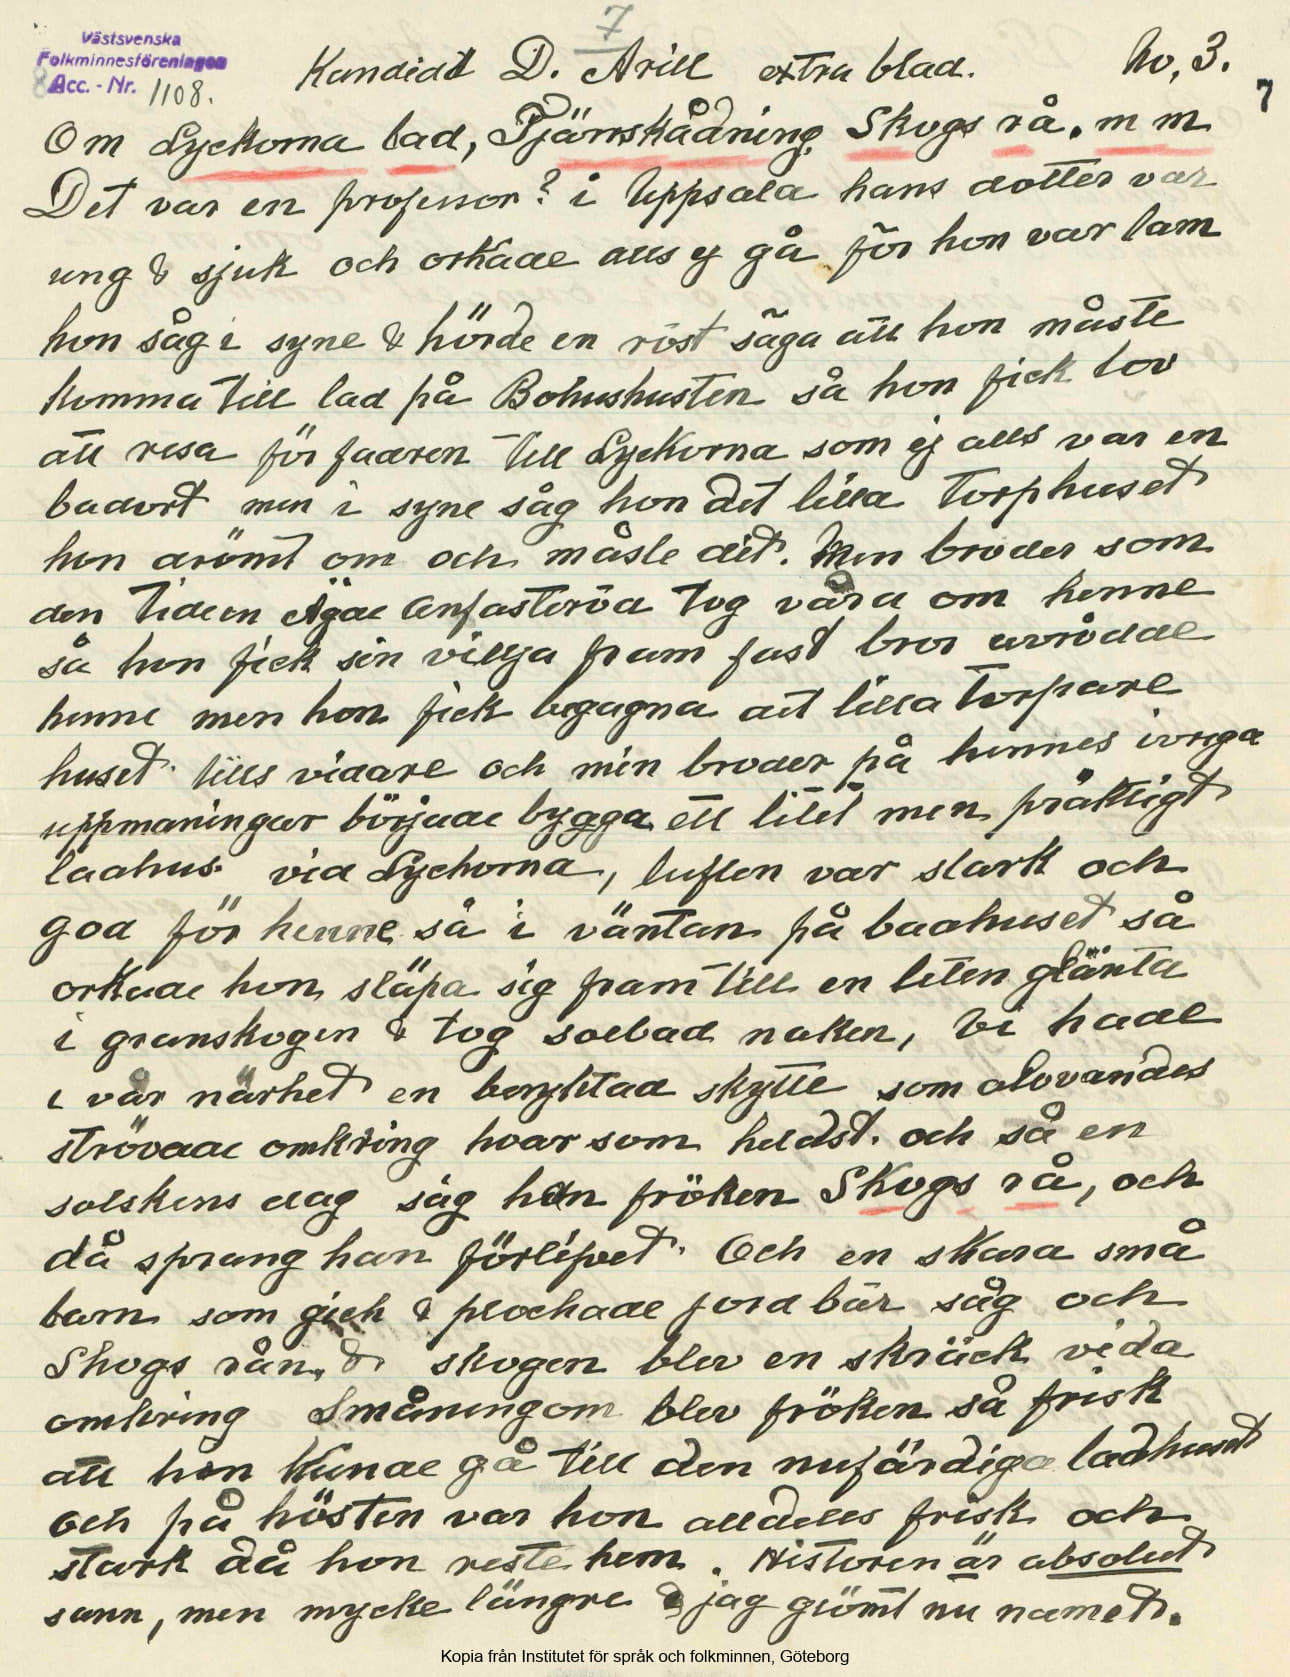 7
Västsvenska
Folkminnesföreningen
Acc.-Nr. 1108.
Kandidat D. Arill extra blad. No, 3.
7
Om Lyckorna bad, Fjärrskådning, Skogs rå. m m
Det var en professor? i Uppsala hans dotter var
ung & sjuk och orkade alls ej gå för hon var lam
hon såg i syne & hörde en röst säga att hon måste
komma till bad på Bohuskusten så hon fick lov
att resa för fadren till Lyckorna som ej alls var en
badort men i syne såg hon det lilla torphuset
hon drömt om och måste dit. Men broder som
den tiden Ägde Anfasteröd tog vård om henne
så hon fick sin vilja fram fast bror avrådde
henne men hon fick begagna det lilla torpare
huset tills vidare och min broder på hennes ivriga
uppmaningar började bygga ett litet men präktigt
badhus. vid Lyckorna, luften var stark och
god för henne så i väntan på badhuset så
orkade hon släpa sig fram till en liten glänta
i granskogen & tog solbad naken, Vi hade
i vår närhet en beryktad skytte som olovandes
strövade omkring hvar som heldst. och så en
solskens dag såg han fröken Skogs rå, och
då sprang han förlipet. Och en skara små
barn som gick & plockade jord bär såg och
Skogs rån, & skogen blev en skräck vida
omkring Småningom blev fröken så frisk
att hon kunde gå till den nufärdiga badhuset
och på hösten var hon alldeles frisk och
stark då hon reste hem. Historien är absolut
sann, men mycke längre & jag glömt nu namet.
Kopia från Institutet för språk och folkminnen, Göteborg